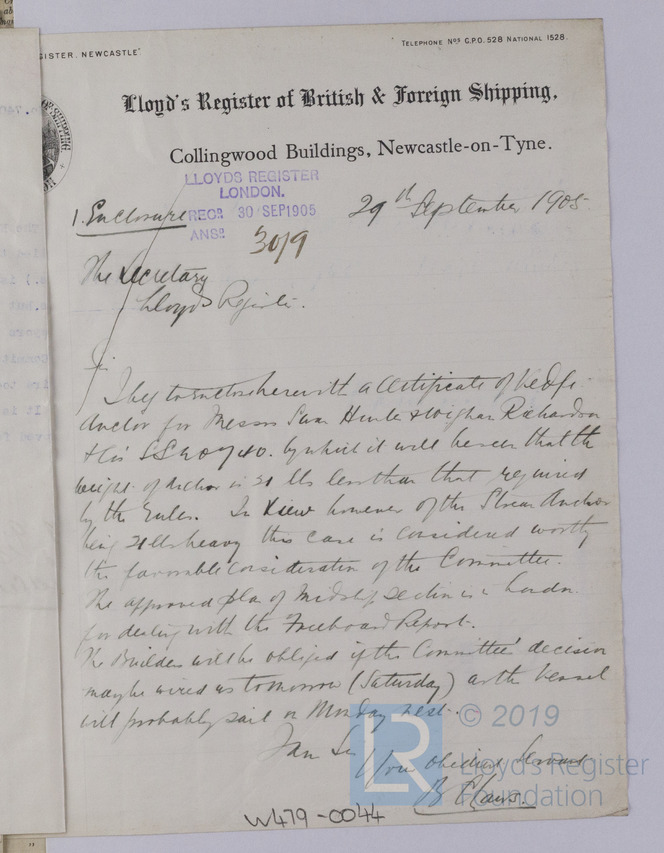 GISTER. NEWCASTLE"
TELEPHONE Nos G.P.O. 528 NATIONAL 1528.
Lloyd's Register of British & Foreign Shipping,
Collingwood Buildings, Newcastle-on-Tyne.
LLOYDS REGISTER
LONDON.
RECD. 30 SEP 1905
ANSD. 30/9
1. Enclosure
29th September 1905
The Secretary
Lloyds Register.
Sir
I beg to enclose herewith a Certificate of Kedge
Anchor for Messrs Swan Hunter & Wigham Richardson
& Co's SS No 740. by which it will be seen that the
weight of Anchor is 21 lbs less than that required
by the Rules. In view however of the Stream Anchor
being lbs heavy this case is considered worthy
the favorable consideration of the Committee.
The approved plan of Midship Section is in London
for dealing with the Freeboard Report.
The Builders will be obliged if the Committee's decision
may be wired us tomorrow (Saturday) as the Vessel
will probably sail on Monday next.
I am Sir
Your obedient Servant
W479-0044
LR
© 2019
Lloyd's Register
Foundation